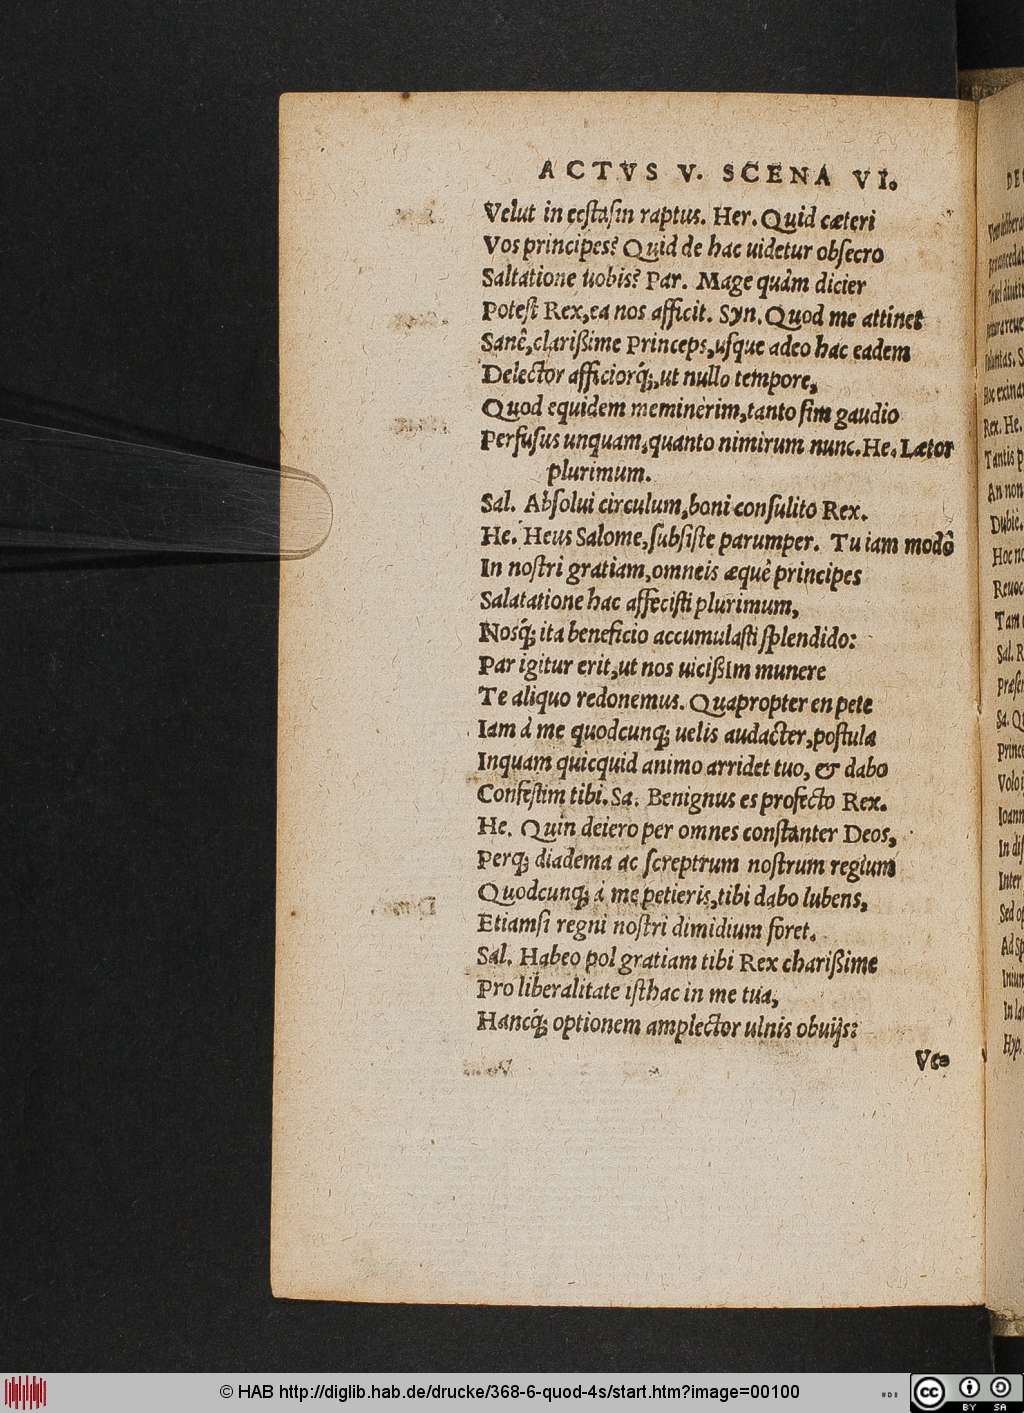 ACTVS V. SCENA VI.
Velut in ecstasin raptus. Her. Quid cæteri
Vos principes? Quid de hac uidetur obsecro
Saltatione uobis? Par. Mage quàm dicier
Potest Rex, ea nos afficit. Syn. Quod me attinet
Sanè, clarißime Princeps, usque adeo hac eadem
Delector afficiorq́;, ut nullo tempore,
Quod equidem meminerim, tanto sim gaudio
Perfusus unquam, quanto nimirum nunc. He. Lætor
plurimum.
Sal. Absolui circulum, boni consulito Rex.
He. Heus Salome, subsiste parumper. Tu iam modò
In nostri gratiam, omneis æquè principes
Salatatione hac affecisti plurimum,
Nosq́; ita beneficio accumulasti splendido:
Par igitur erit, ut nos uicißim munere
Te aliquo redonemus. Quapropter en pete
Iam à me quodcunq; uelis audacter, postula
Inquam quicquid animo arridet tuo, & dabo
Confestim tibi. Sa. Benignus es profecto Rex.
He. Quin deiero per omnes constanter Deos,
Perq; diadema ac screptrum nostrum regium
Quodcunq; à me petieris, tibi dabo lubens,
Etiamsi regni nostri dimidium foret.
Sal. Habeo pol gratiam tibi Rex charißime
Pro liberalitate isthac in me tua,
Hancq́; optionem amplector ulnis obuijs?
Vt
DE
Rex. He.
Tantis p
An non
Dubiè.
Hoc
Tam
Sal. R
Sa. Q
Princ
Volo
Ioann
In dis
Inter
Sed
In la
Hyp.
© HAB http://diglib.hab.de/drucke/368-6-quod-4s/start.htm?image=00100
cc BY SA